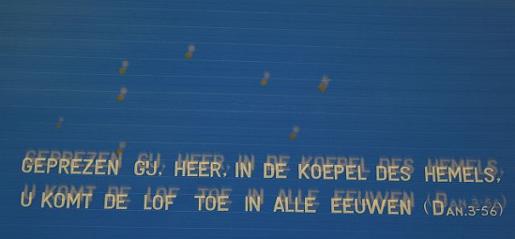 GEPREZEN GIJ, HEER, IN DE KOEPEL DES HEMELS,
U KOMT DE LOF TOE IN ALLE EEUWEN (DAN.3-56)